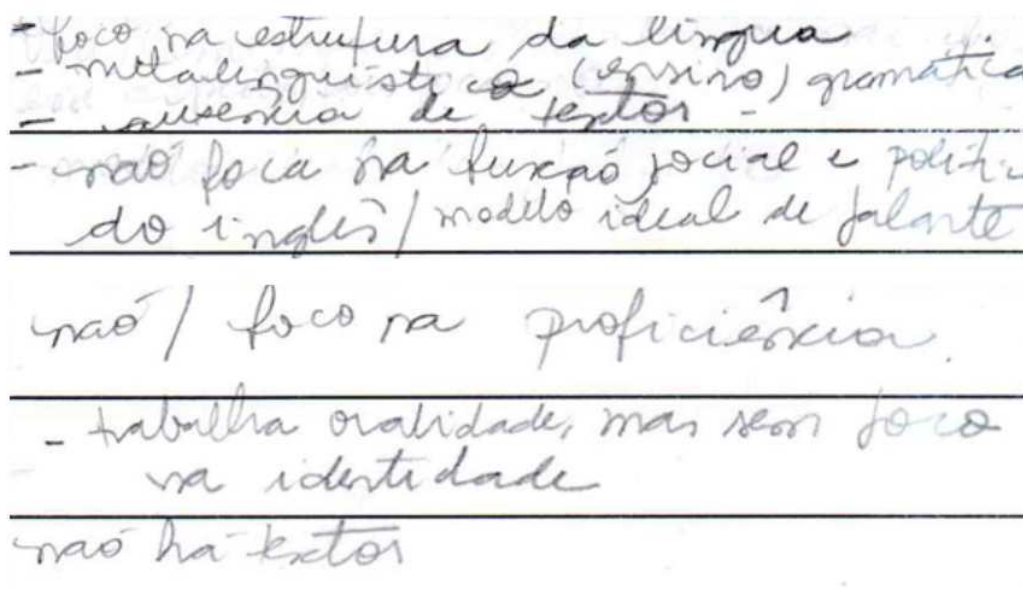 - foco na estrutura da língua
- metalinguística (ensino) gramática
- ausência de textos -
- não foca na função social e políti
do inglês / modelo ideal de falante
não / foco na proficiência.
- trabalha oralidade, mas sem foco
na identidade
não há textos